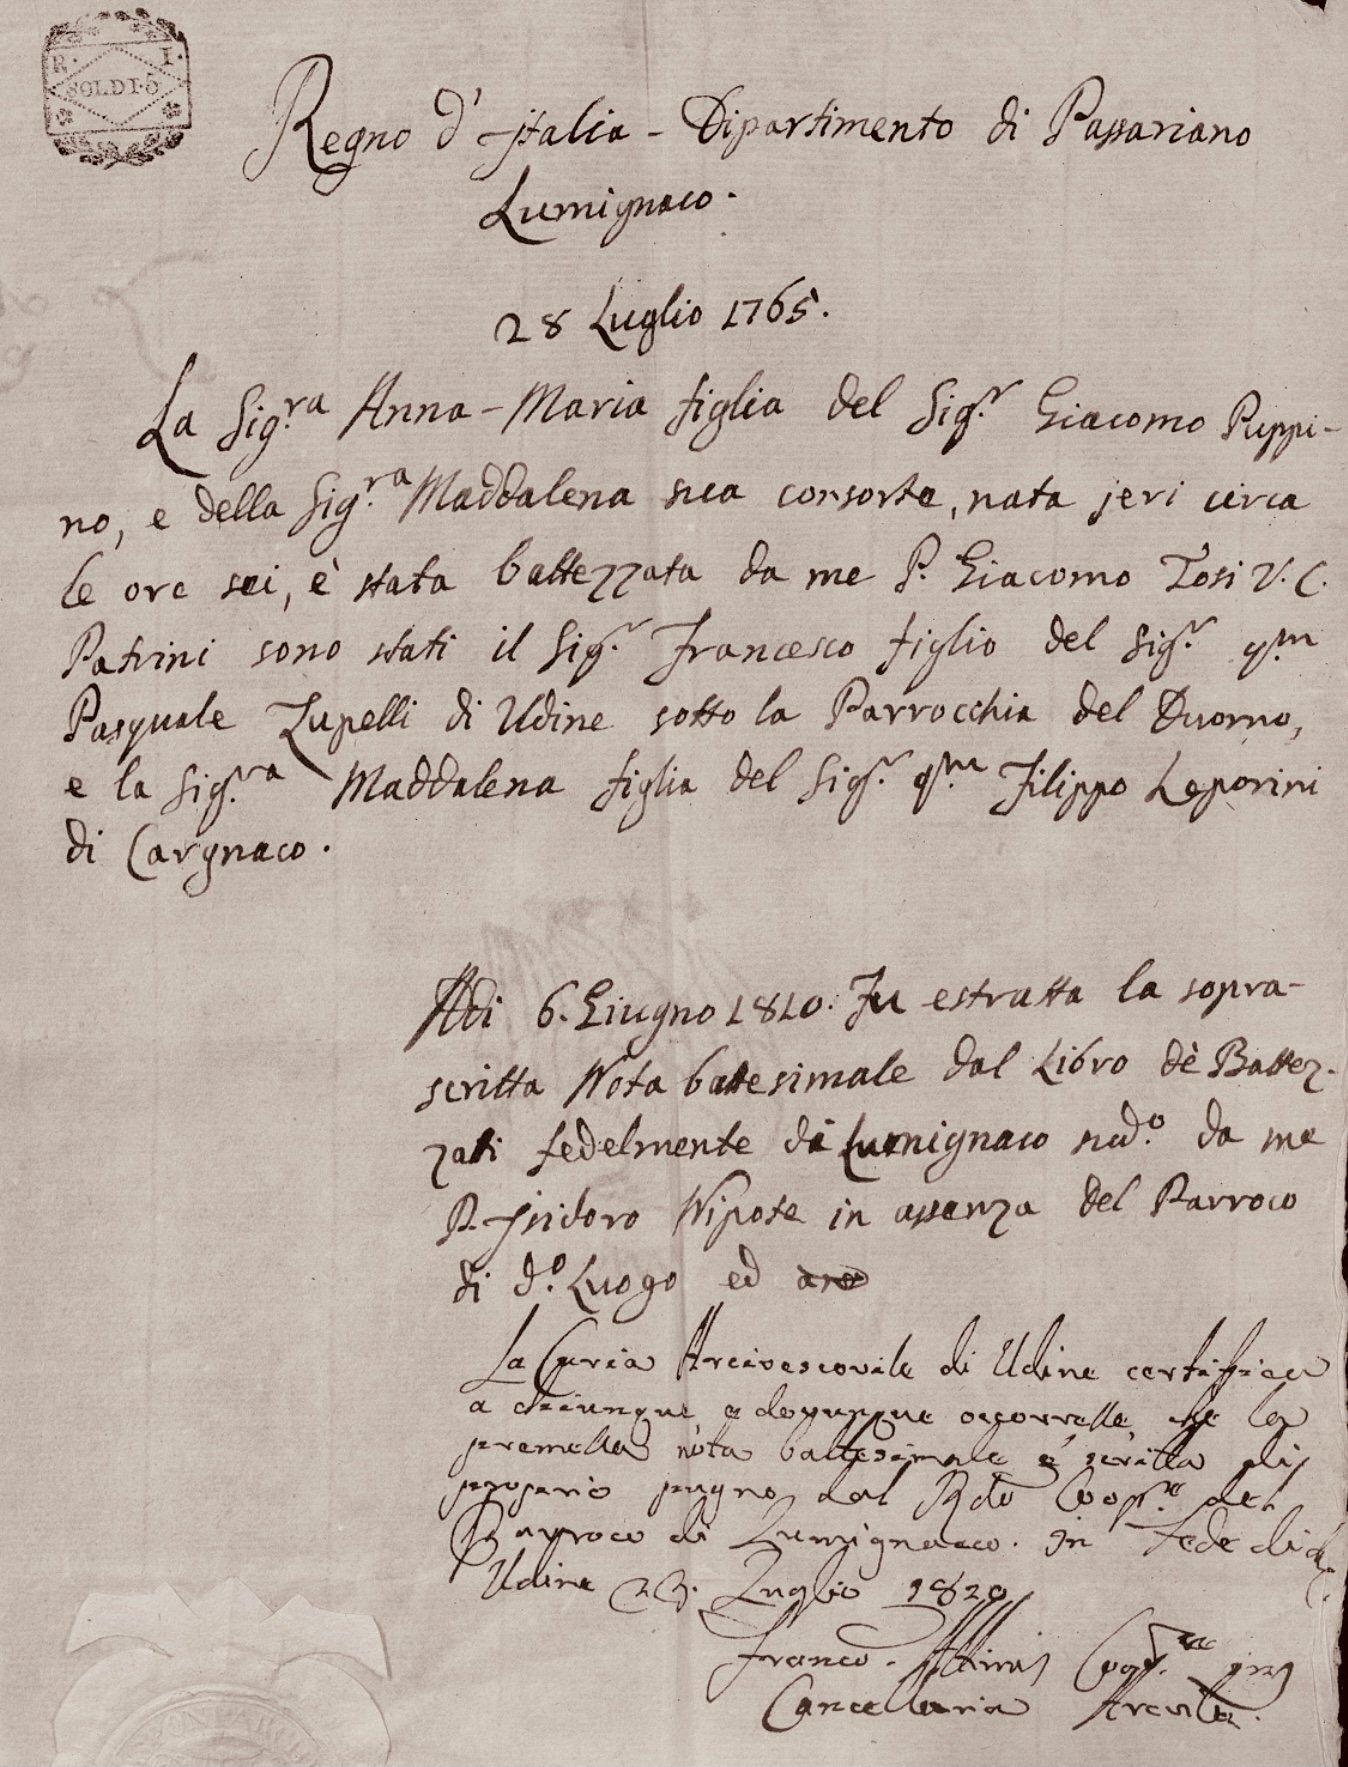 R. I.
SOLDI
Regno d'Italia - Dipartimento di Passariano
Lumignaco.
28 Luglio 1765.
La Sig.ra Anna-Maria figlia del Sig.r Giacomo Puppi-
no, e della Sig.ra Maddalena sua consorte, nata jeri circa
le ore sei, è stata battezzata da me P. Giacomo Tosi V. C.
Patrini sono stati il Sig.r Francesco figlio del Sig.r q.m
Pasquale Zupelli di Udine sotto la Parrocchia del Duomo,
e la Sig.ra Maddalena figlia del Sig.r q.m Filippo Leporini
di Cargnaco.
Adi 6. Giugno 1810. Fu estratta la sopra-
scritta Nota battesimale dal Libro dè Battez-
zati fedelmente di Lumignaco sud.o da me
P. Isidoro Nipote in assenza del Parroco
di d.o Luogo ed
La Curia Arcivescovile di Udine certifica
a chiunque, e dovunque occorresse, che la
premessa nota battesimale è scritta di
proprio pugno dal Rdo Coop.re del
Parroco di Lumignacco. In Fede di che
Udine Luglio 1820
Franco. Attimis
Cancelleria Arcivile.